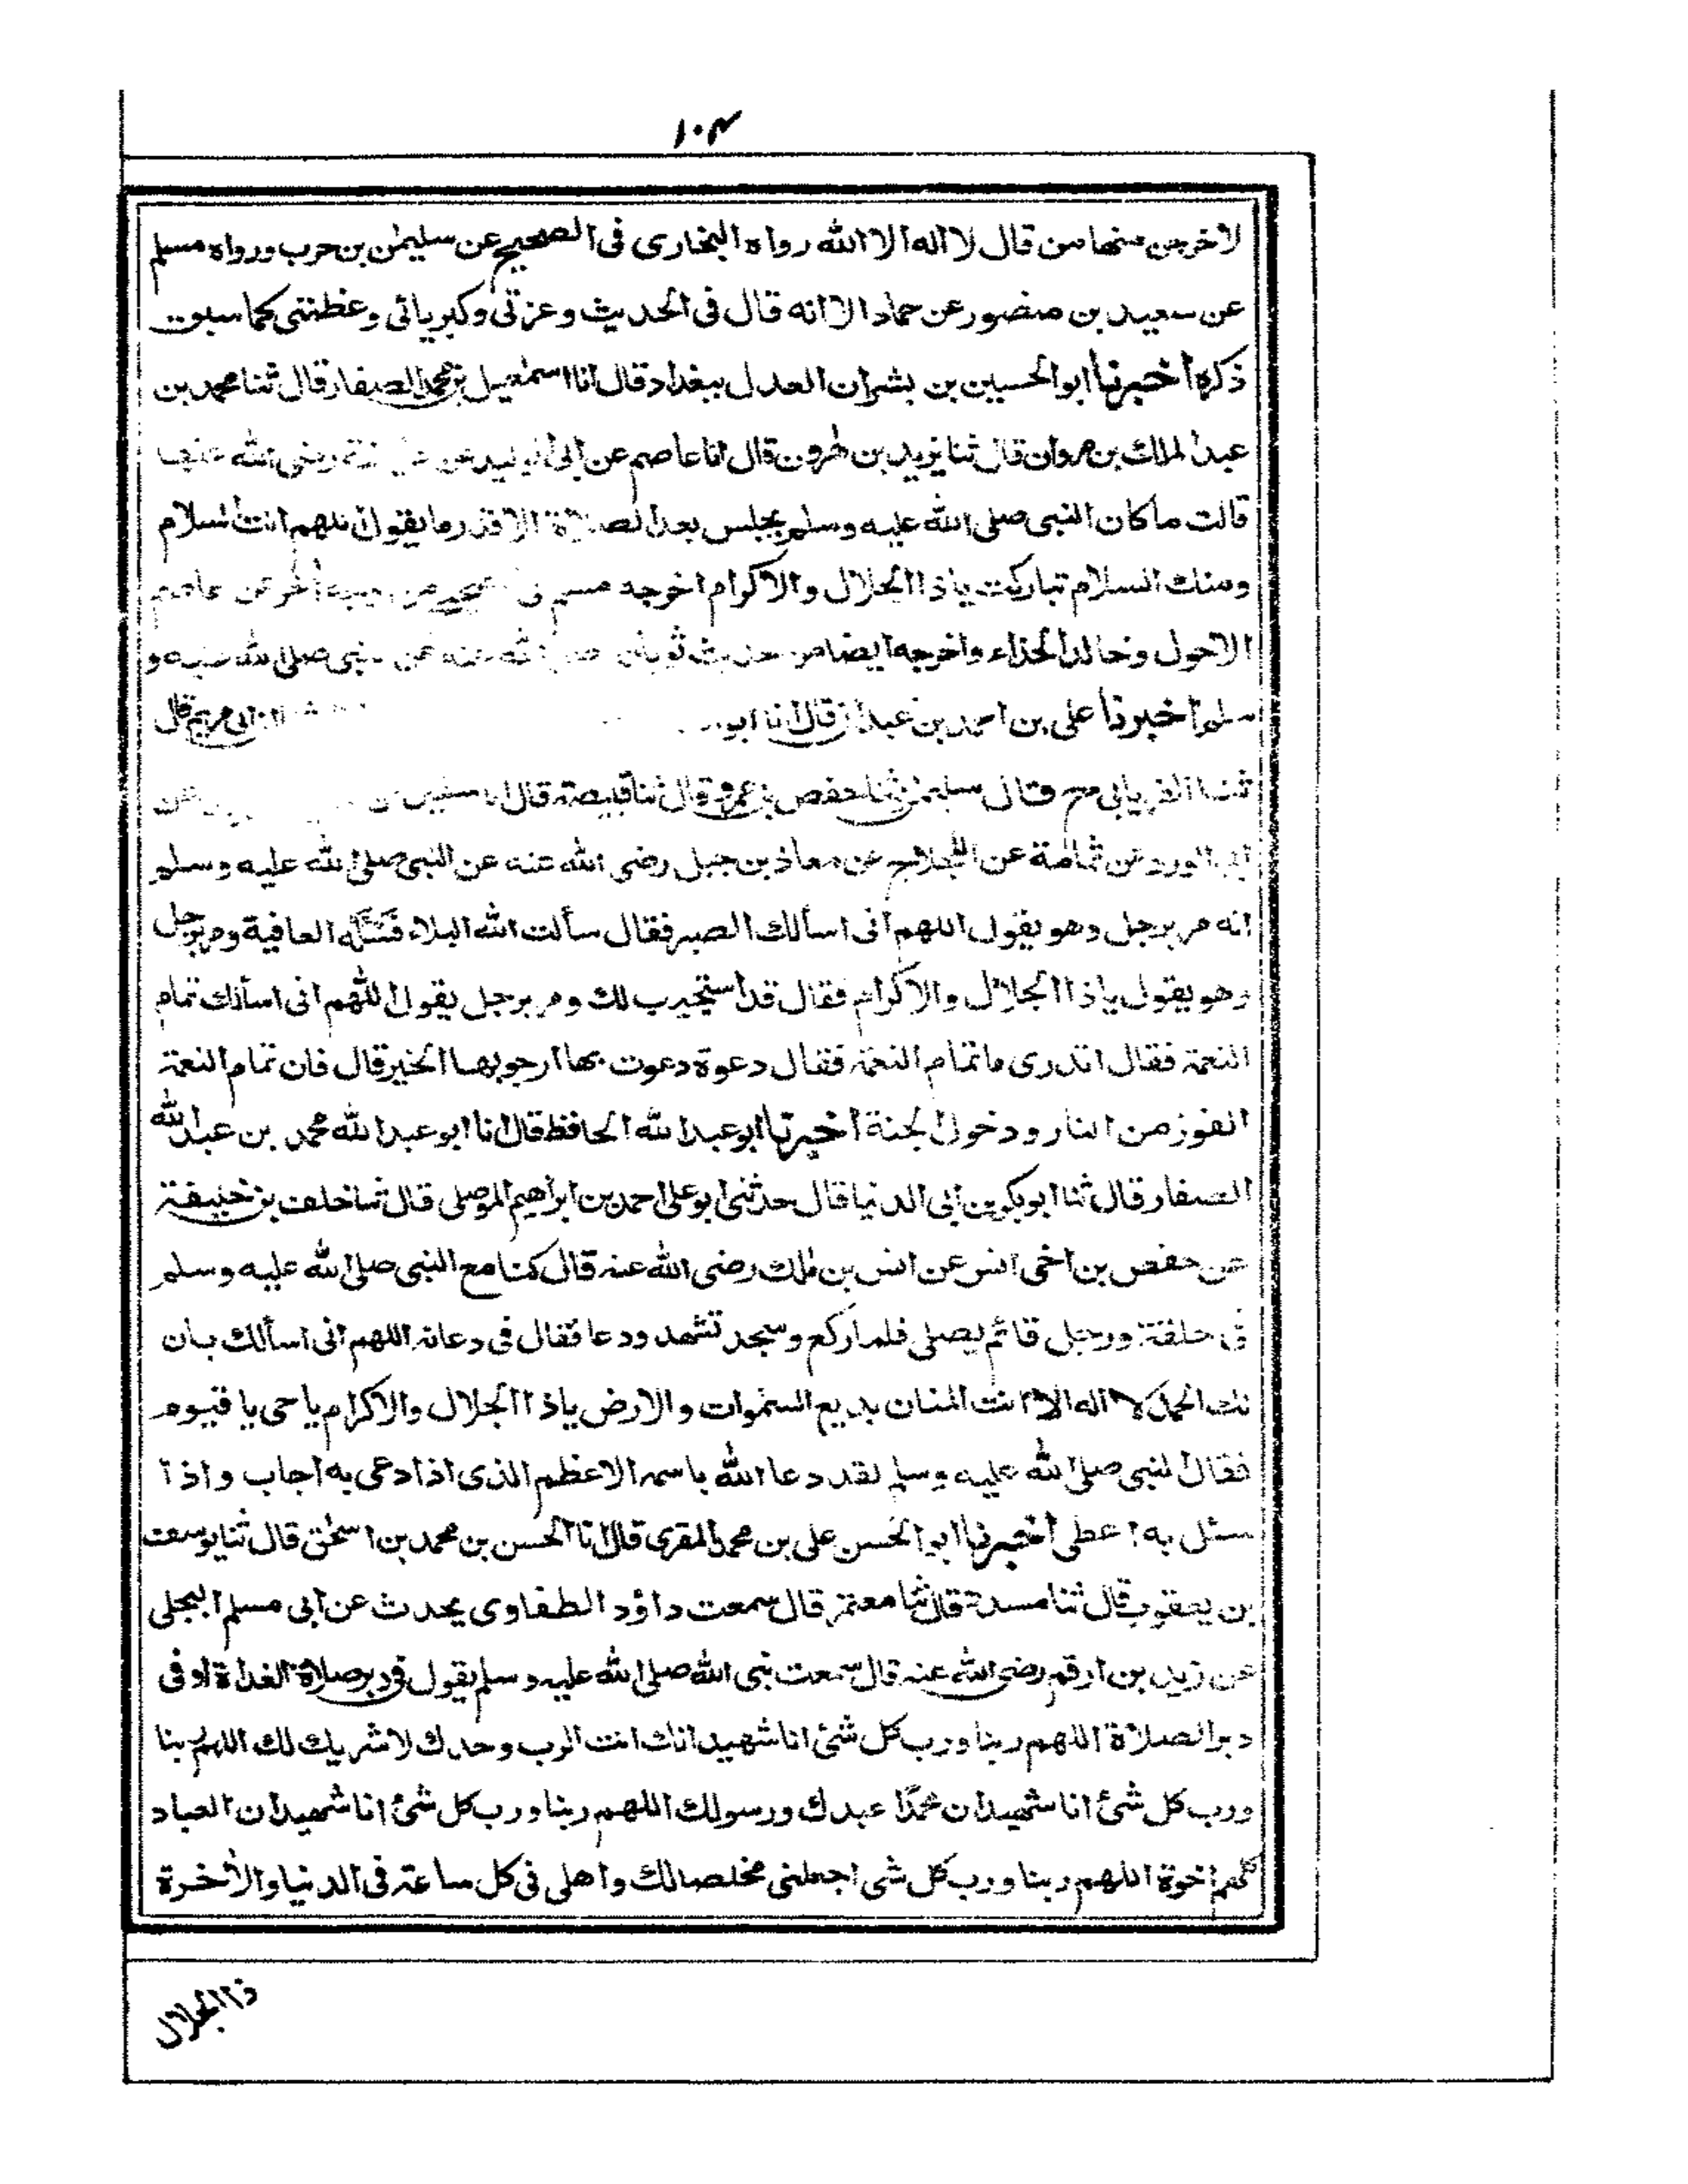 ١٠٣
لاخرجن منها من قال لا اله الا الله رواه البخارى فى الصحيح عن سليمٰن بن حرب ورواه مسلم
عن سعيد بن منصور عن حماد الا انه قال فى الحديث وعزتى وكبريائى وعظمتى كما سبق
ذكره اخبرنا ابو الحسين بن بشران العدل ببغداد قال انا اسمٰعيل بن محمد الصفار قال ثنا محمد بن
عبد الملك بن مروان قال ثنا يزيد بن هٰرون قال انا عاصم عن ابى الوليد عن رضى الله عنها
قالت ما كان النبى صلى الله عليه وسلم يجلس بعد الصلاة الا قدر ما يقول اللهم انت السلام
ومنك السلام تباركت يا ذا الجلال والاكرام اخرجه مسلم فى عن عاصم
الاحول وخالد الحذاء واخرجه ايضا من حديث ثوبان عن النبى صلى الله عليه و
سلم اخبرنا على بن احمد بن عبدان قال انا ابو ابن ابى مريم قال
ثنا الفريابى ح قال سليمٰن ثنا حفص بن عمر قال ثنا قبيصة قال ثنا سفيٰن عن
ابى الورد عن ثمامة عن اللجلاج عن معاذ بن جبل رضى الله عنه عن النبى صلى الله عليه وسلم
انه مر برجل وهو يقول اللهم انى اسألك الصبر فقال سألت الله البلاء فَسَلْه العافية ومر برجل
وهو يقول يا ذا الجلال والاكرام فقال قد استجيب لك ومر برجل يقول اللهم انى اسألك تمام
النعمة فقال اتدرى ما تمام النعمة فقال دعوة دعوت بها ارجو بها الخير قال فان تمام النعمة
الفوز من النار ودخول الجنة اخبرنا ابو عبد الله الحافظ قال انا ابو عبد الله محمد بن عبد الله
الصفار قال ثنا ابو بكر بن ابى الدنيا قال حدثنى ابو على احمد بن ابراهيم الموصلى قال ثنا خلف بن خليفة
عن حفص بن اخى انس عن انس بن مٰلك رضى الله عنه قال كنا مع النبى صلى الله عليه وسلم
فى حلقة ورجل قائم يصلى فلما ركع وسجد تشهد ودعا فقال فى دعائه اللهم انى اسألك بان
لك الحمد لا اله الا انت المنان بديع السمٰوات والارض يا ذا الجلال والاكرام يا حى يا قيوم
فقال النبى صلى الله عليه وسلم لقد دعا الله باسمه الاعظم الذى اذا دعى به اجاب واذا
سئل به اعطى اخبرنا ابو الحسن على بن محمد المقرى قال انا الحسن بن محمد بن اسحٰق قال ثنا يوسف
بن يعقوب قال ثنا مسدد قال ثنا معتمر قال سمعت داؤد الطفاوى يحدث عن ابى مسلم البجلى
عن زيد بن ارقم رضى الله عنه قال سمعت نبى الله صلى الله عليه وسلم يقول فى دبر صلاة الغداة او فى
دبر الصلاة اللهم ربنا ورب كل شئ انا شهيد انك انت الرب وحدك لا شريك لك اللهم ربنا
ورب كل شئ انا شهيد ان محمدًا عبدك ورسولك اللهم ربنا ورب كل شئ انا شهيد ان العباد
كلهم اخوة اللهم ربنا ورب كل شى اجعلنى مخلصا لك واهلى فى كل ساعة فى الدنيا والأخرة
ذا الجلال